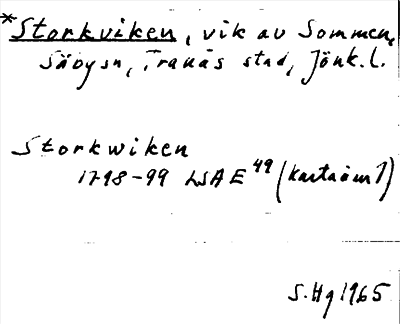 *Storkviken, vik av Sommen,
Säbysn, Tranås stad, Jönk.l.
Storkwiken
1798-99 LSA E 49 (kartaämn)
S.Hg 1965